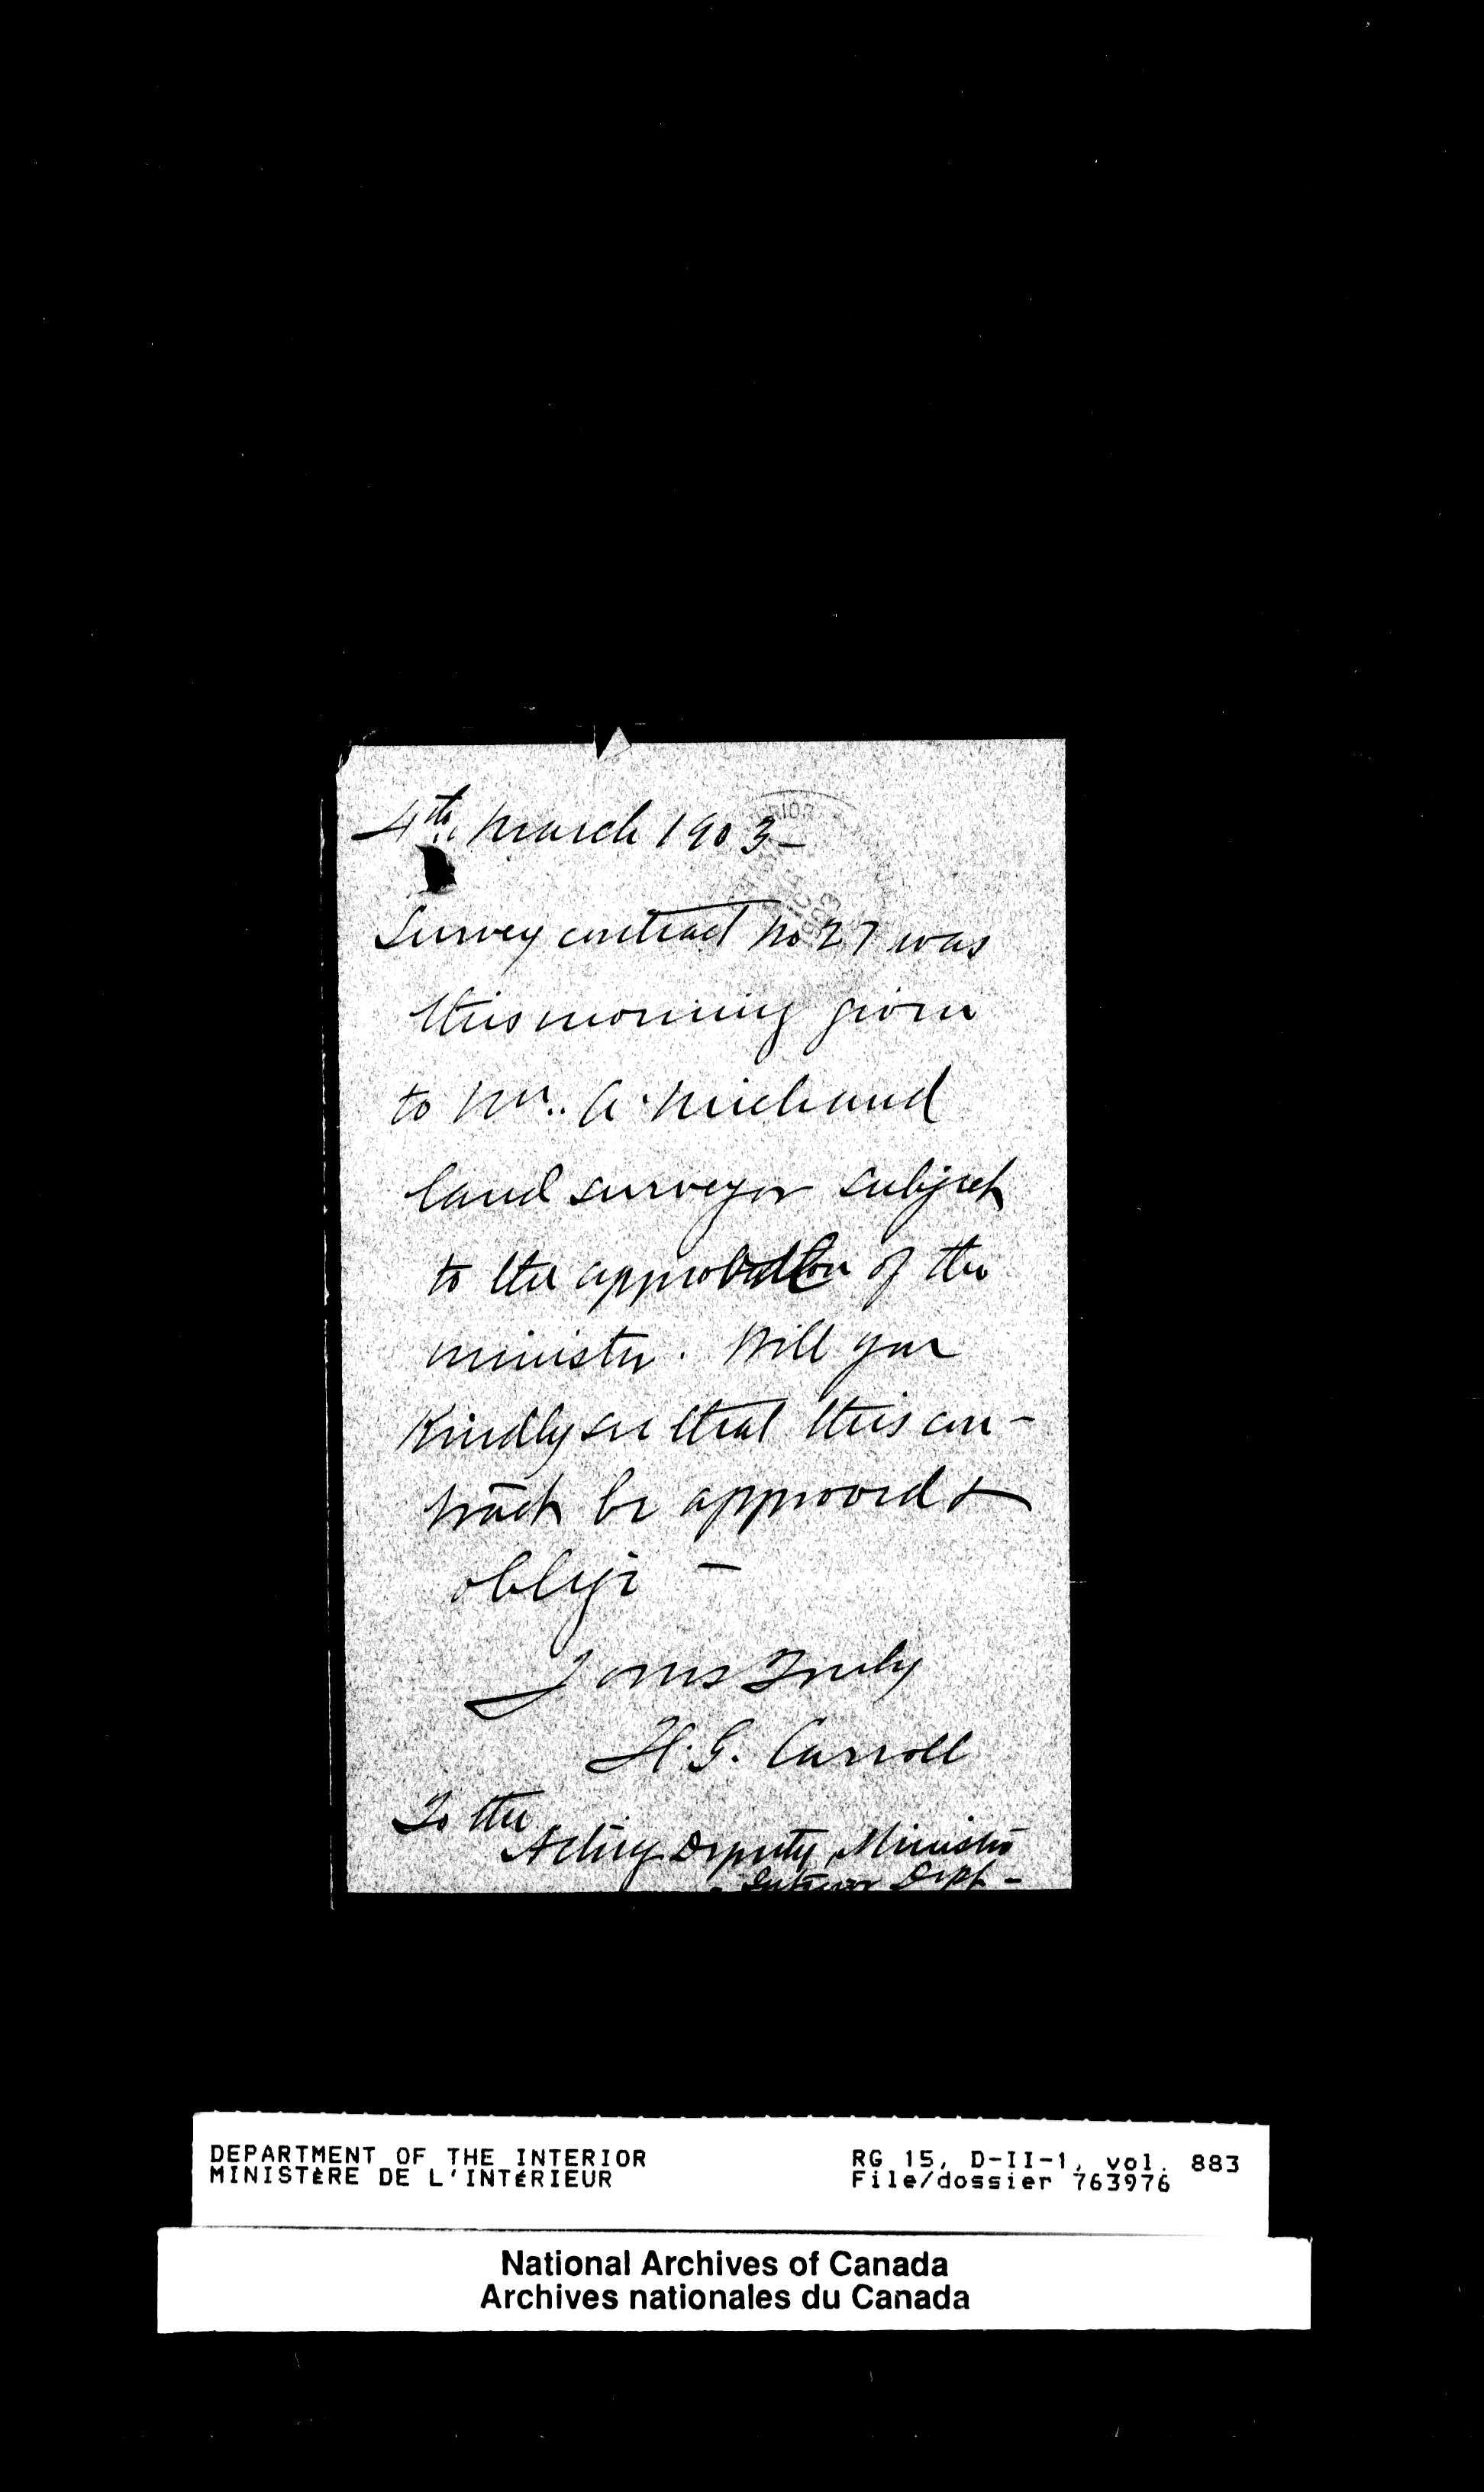 4th March 1903 –
Survey contract No 27 was
this morning given
to Mr. A. Michaud
land surveyor subject
to the approbation of the
minister. Will you
Kindly see that this con-
tract be approved &
oblige –
Yours Truly
H.G. Carroll
To the
Acting Deputy Minister
Interior Dept –
DEPARTMENT OF THE INTERIOR
MINISTÈRE DE L'INTÉRIEUR
RG 15, D-II-1, vol. 883
File/dossier 763976
National Archives of Canada
Archives nationales du Canada